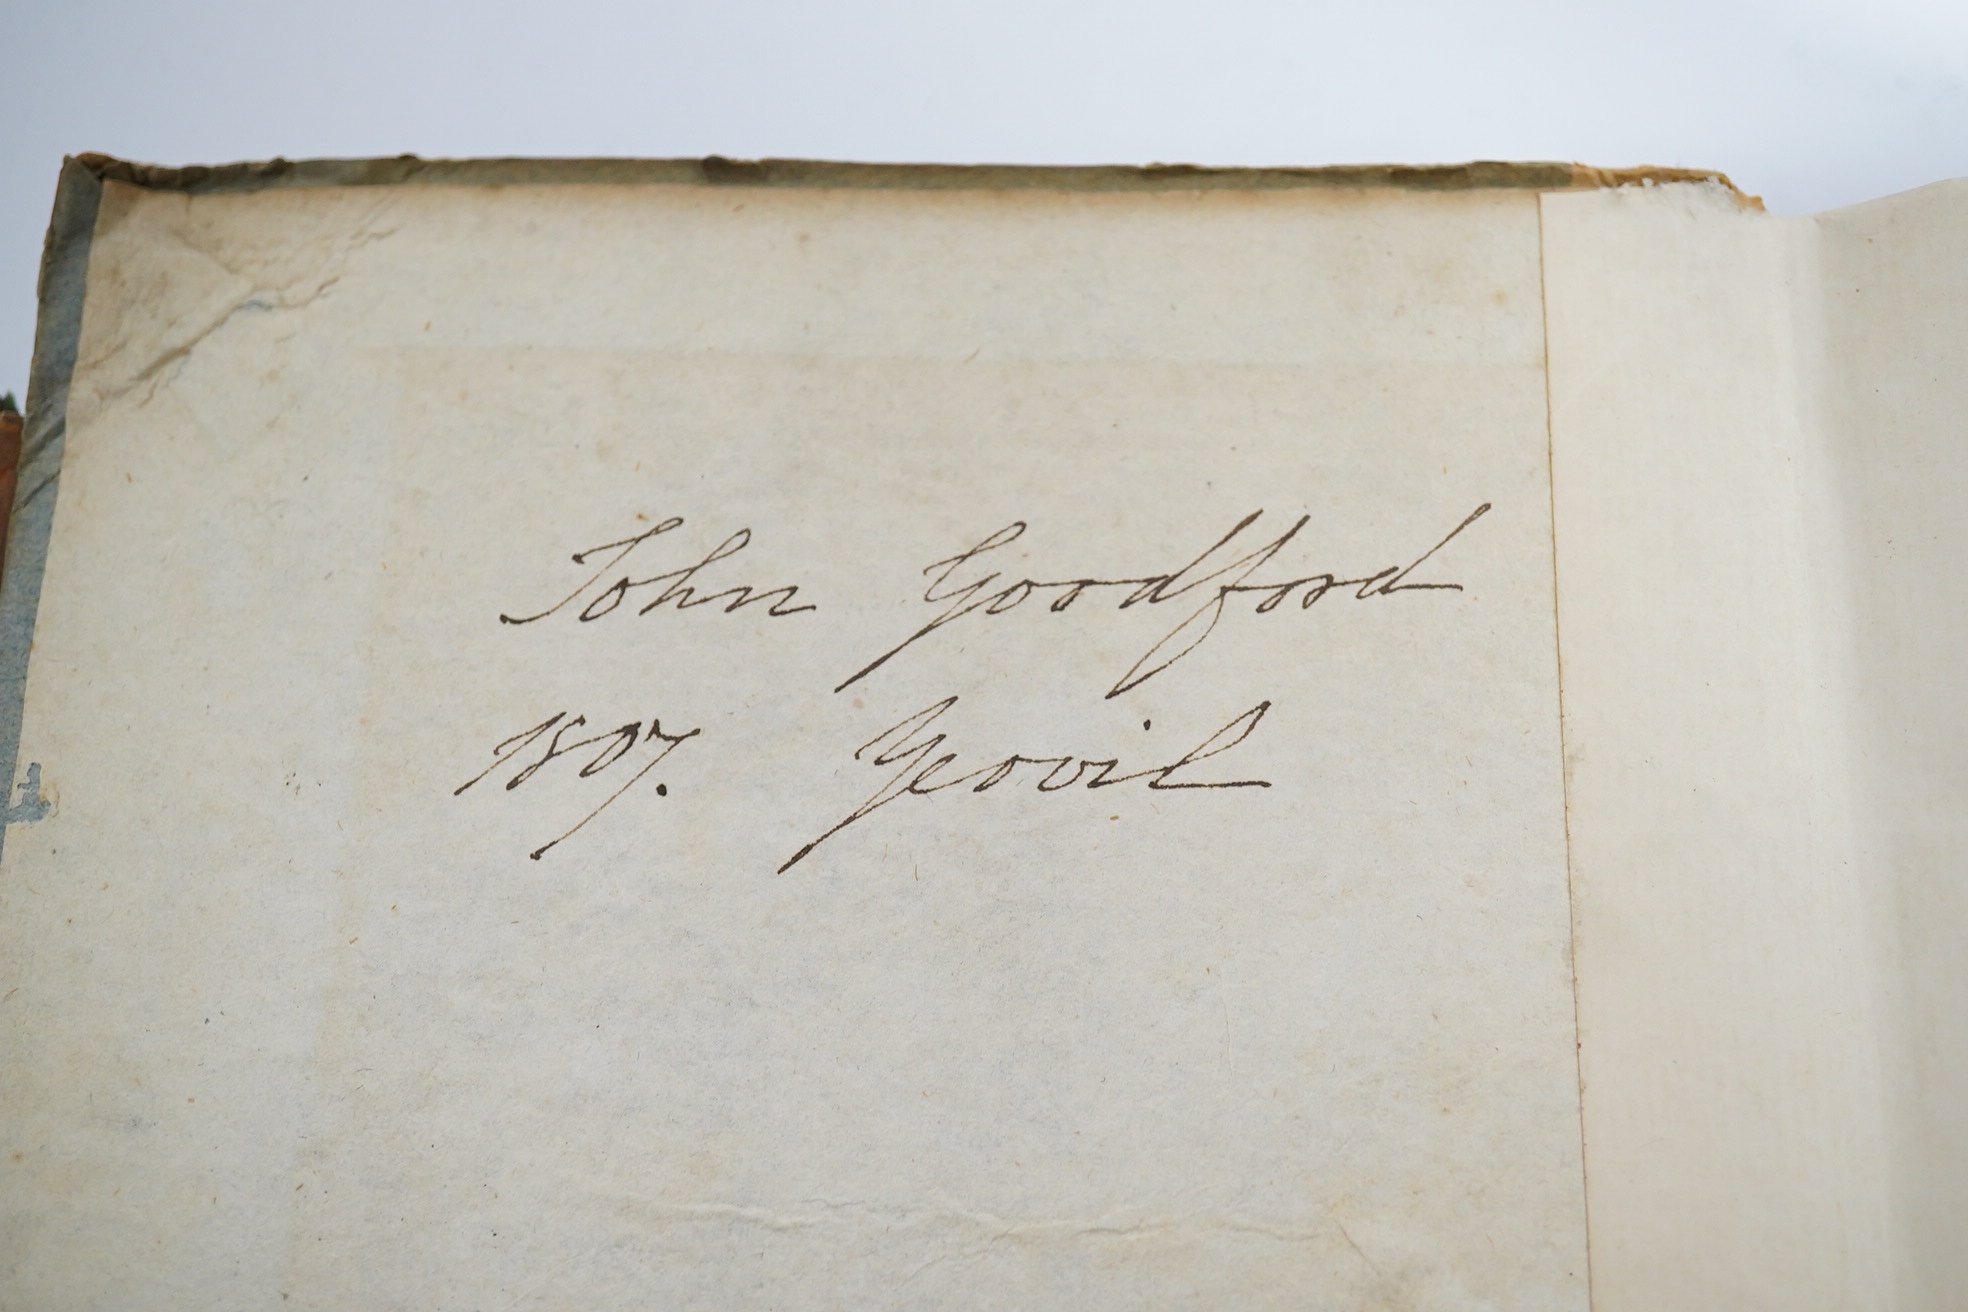 John Goodford
1807. Yeovil